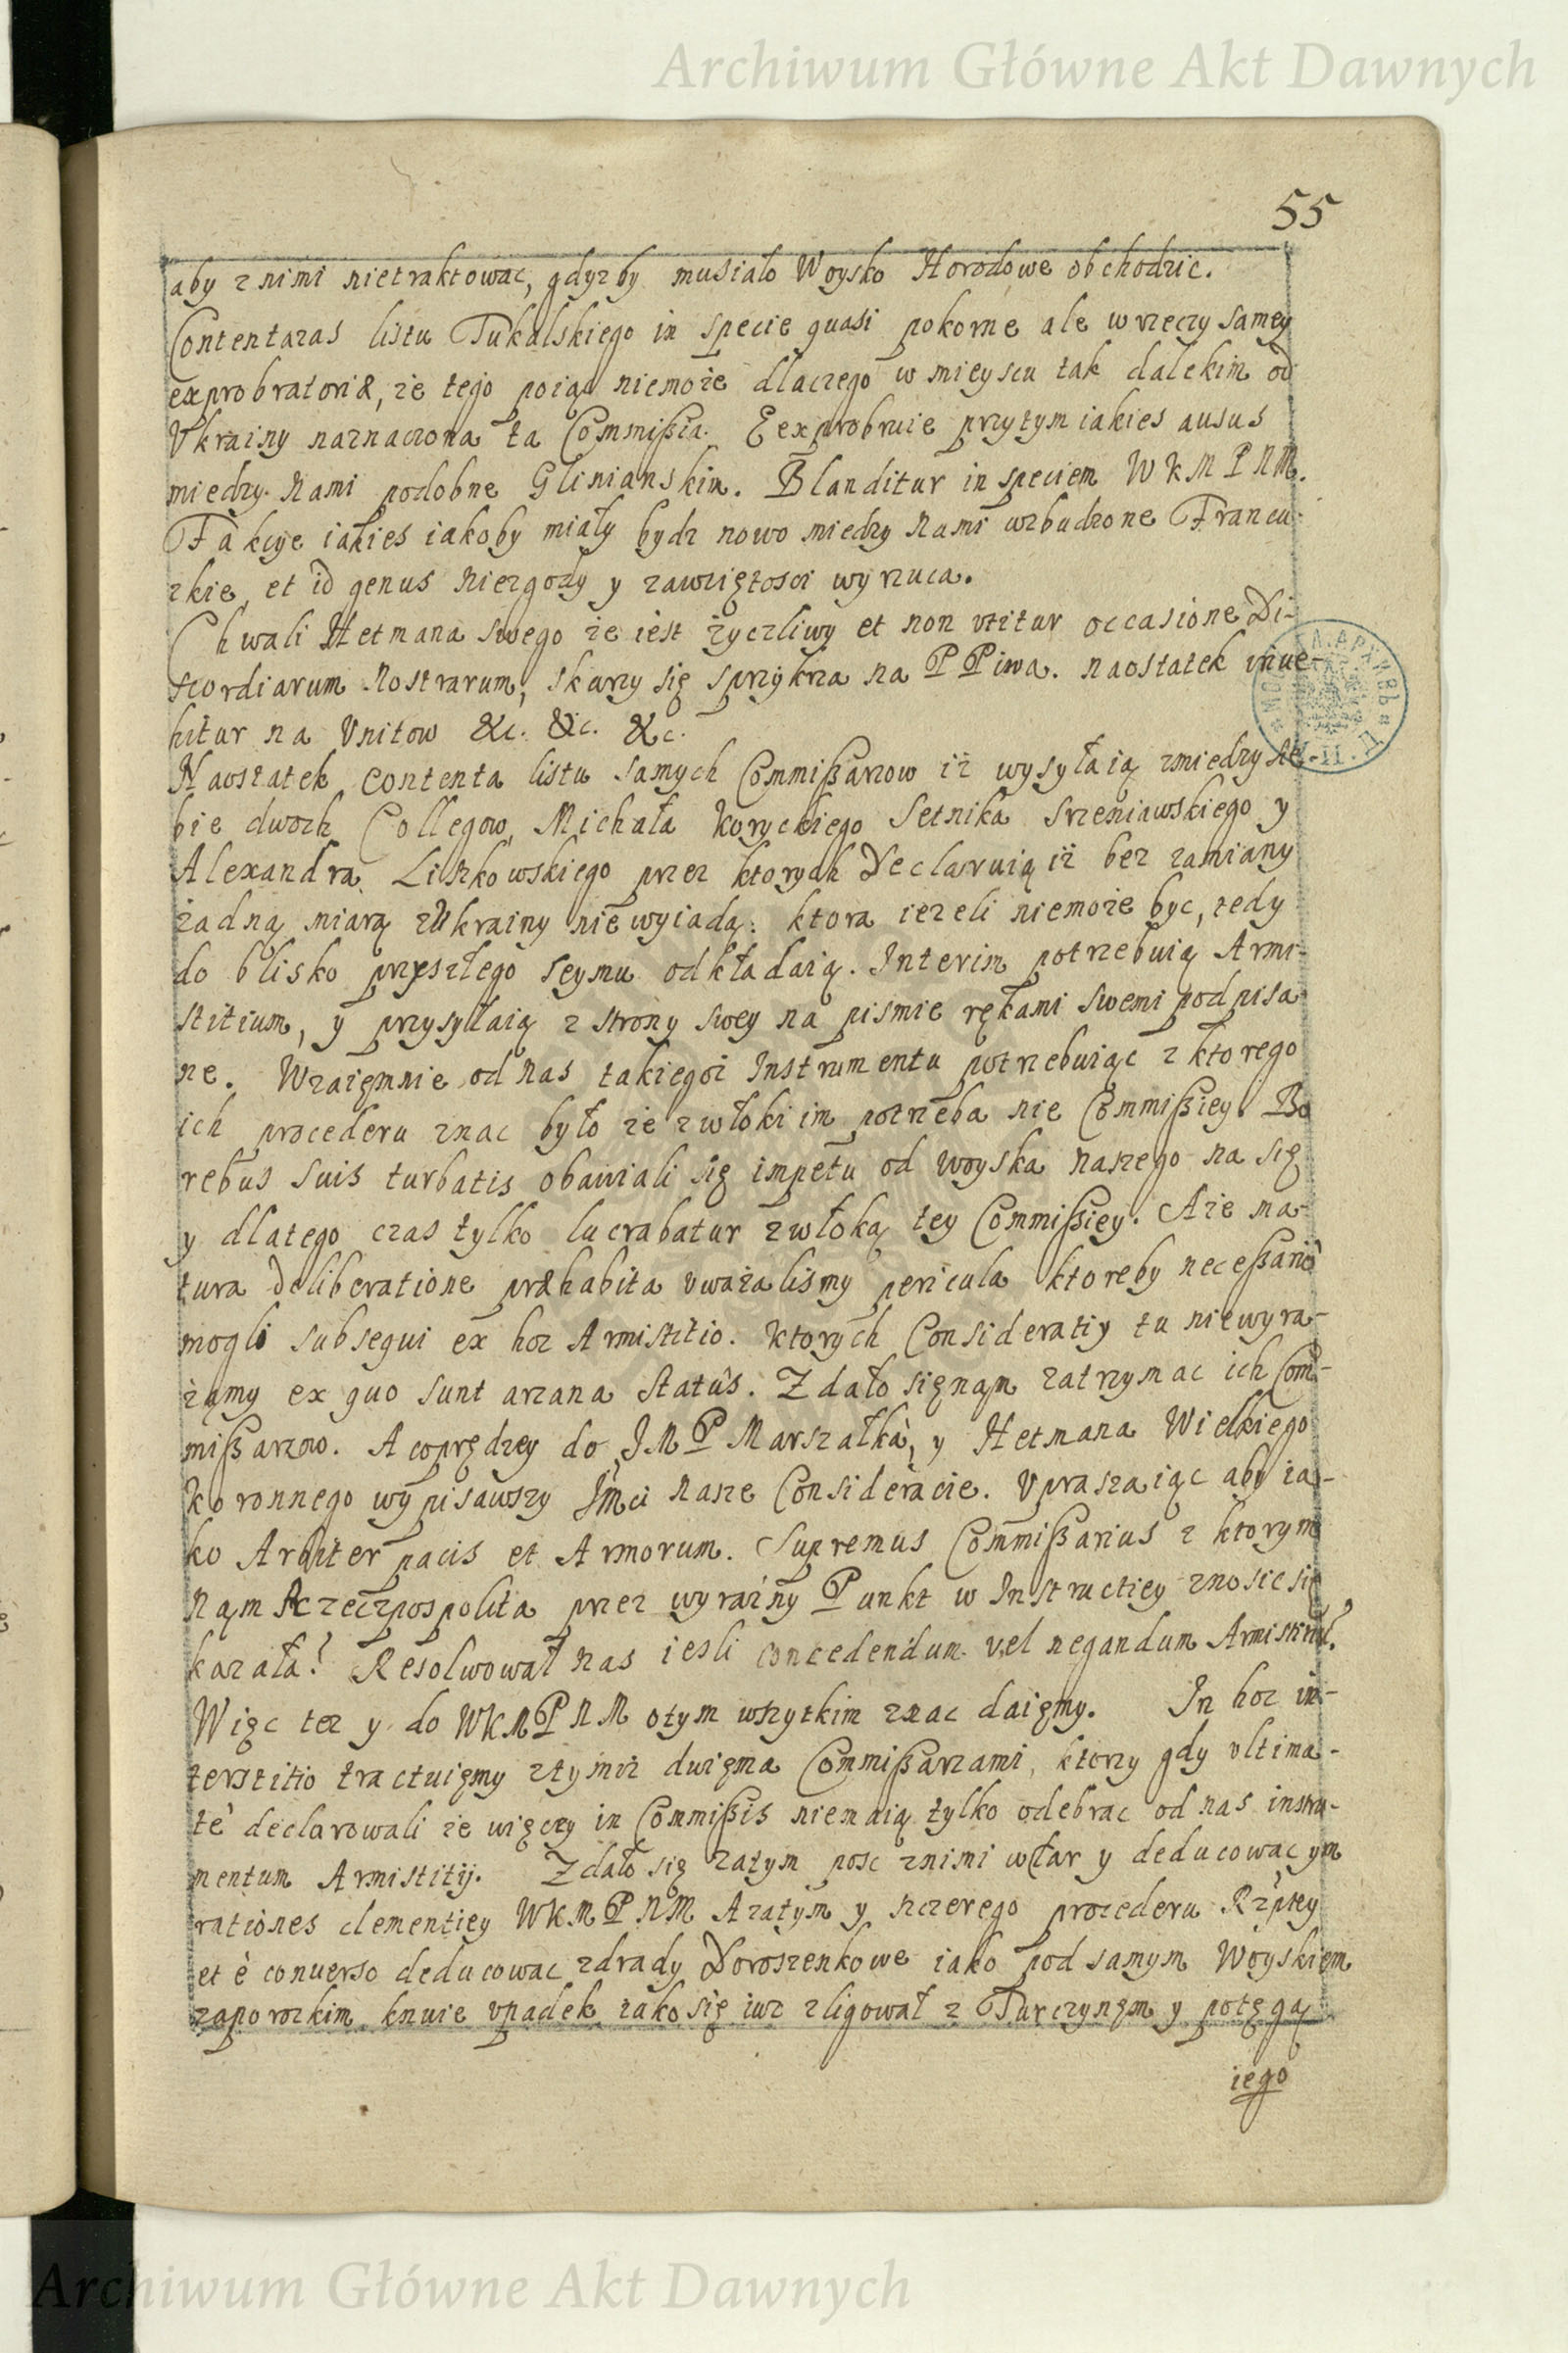 Archiwum Główne Akt Dawnych
55
aby z nimi nietraktowac, gdyzby musiało Woysko Horodowe obchodzic.
Contentazas listu Tukalskiego in specie quasi pokorne ale w rzeczy samey
exprobratoriæ, że tego poiąc niemoże dlaczego w mieyscu tak dalekim od
Vkrainy naznaczona ta Commißia. Eexprobruie przytym iakies ausus
miedzy Nami podobne Glinianskim. Blanditur in speciem W K M P N M.
Fakcye iakies iakoby miały bydz nowo miedzy Nami wzbudzone Francu-
zkie, et id genus niezgody y zawziętosci wyrzuca.
Chwali Hetmana swego że iest życzliwy et non vtitur occasione Di-
scordiarum Nostrarum, skarzy się zprzykrza na P Piwa. naostatek inue-
hitur na Vnitow &c. &c. &c.
Naostatek contenta listu samych Commißarzow iż wysyłaią zmiedzy sie-
bie dwoch Collegow, Michała Koryckiego Setnika Srzeniawskiego y
Alexandra Liszkowskiego przez ktorych Declaruią iż bez zamiany
żadną miarą zUkrainy niewyiadą: ktora iezeli niemoże byc, tedy
do blisko przyszłego seymu odkładaią. Interim potrzebuią Armi-
stitium, y przysyłaią z strony swey na pismie rękami swemi podpisa-
ne. Wzaięmnie od Nas takiegoż Instrumentu potrzebuiąc z ktorego
ich procederu znac było że zwłoki im potrzeba nie Commißiey. Bo
rebus suis turbatis obawiali się impetu od woyska naszego na się
y dlatego czas tylko lucrabatur zwłoką tey Commißiey. Aże ma-
tura deliberatione præhabita vważalismy pericula ktoreby neceßariò
mogli subsequi ex hoc Armistitio. Ktorych Consideratiy tu niewyra-
żąmy ex quo sunt arcana Statûs. Zdało sięnąm zatrzymac ich Com-
mißarzow. Acoprędzey do JMP Marszałka, y Hetmana Wielkiego
Koronnego wypisawszy Jmci nasze Consideracie. Vpraszaiąc aby ia-
ko Arbiter pacis et Armorum. Supremus Commißarius z ktorym
Nąm Rzeczpospolita przez wyrażny Punkt w Instructiey znosic się
kazała? Resolwował nas iesli concedendum vel negandum Armistitiũ?
Więc tez y do WKMPNM otym wszytkim znac daięmy. In hoc in-
terstitio tractuięmy ztymiż dwięma Commißarzami, ktorzy gdy vltima-
tè declarowali że więczy in Commißis niemaią tylko odebrac od nas instru-
mentum Armistitij. Zdało się zatym posc znimi wtar y deducowac ym
rationes clementiey WKMPNM Azatym y szczerego procederu Rzptey
et è conuerso deducowac zdrady Doroszenkowe iako pod samym Woyskiem
zaporozkim knuie vpadek iako się iuz zligował z Turczynęm y potęgą
iego
Archiwum Główne Akt Dawnych